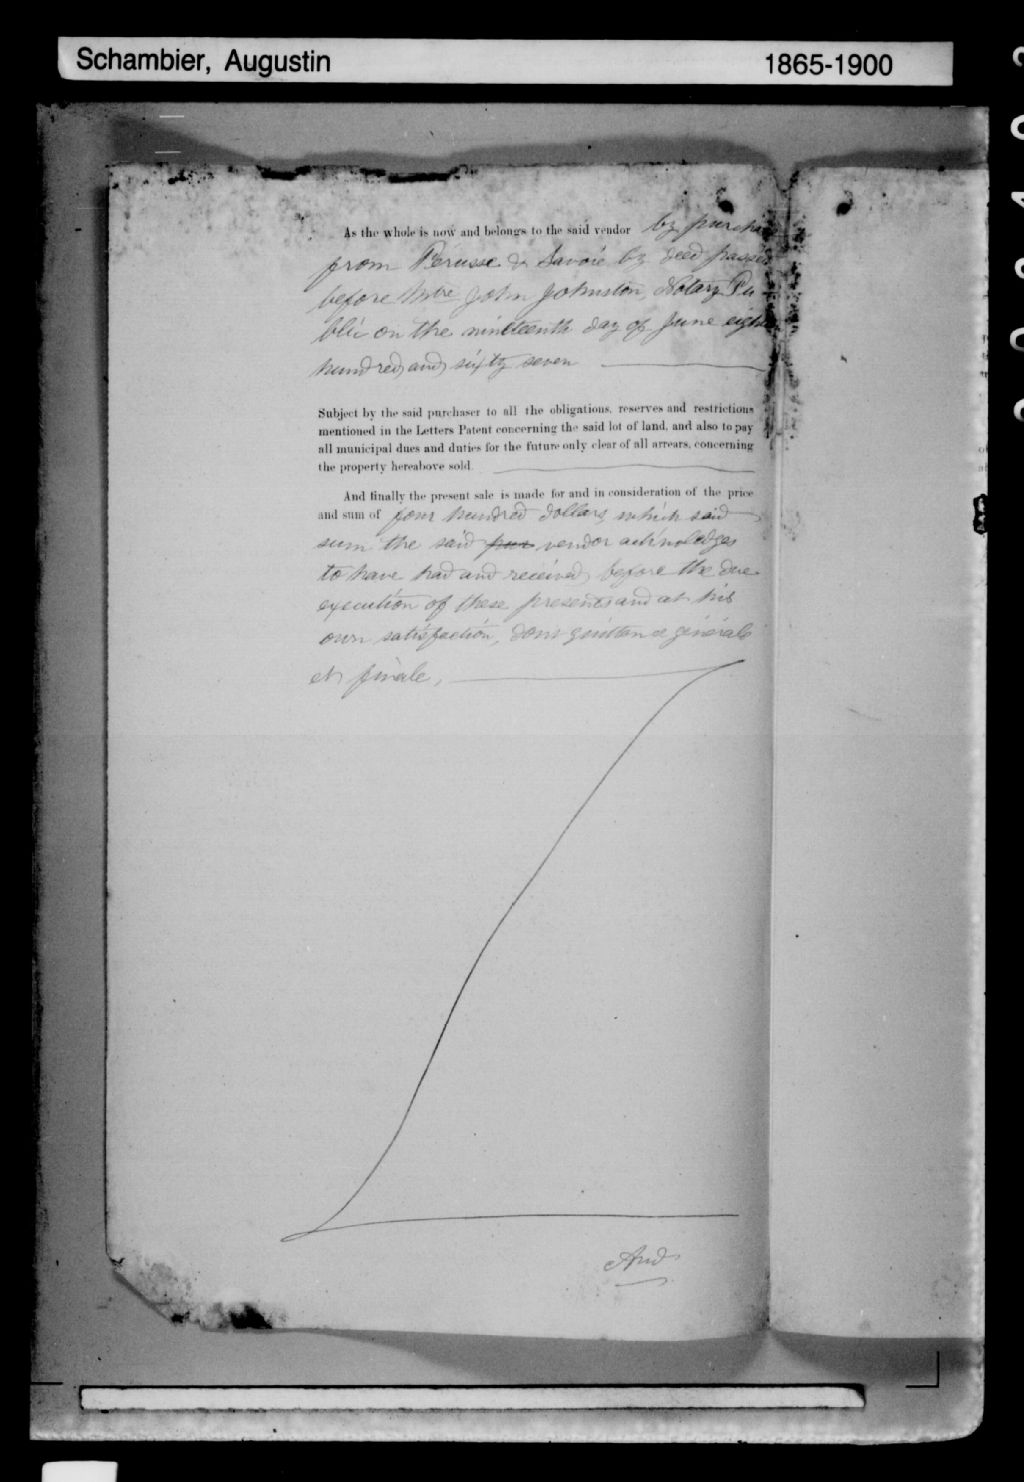 Schambier, Augustin 1865-1900
As the whole is now and belongs to the said vendor by purcha
from Perusse & Savoie by deed passed
before Mtre John Johnston, Notary Pu
blic on the nineteenth day of June eight
hundred and sixty seven
Subject by the said purchaser to all the obligations, reserves and restrictions
mentioned in the Letters Patent concerning the said lot of land, and also to pay
all municipal dues and duties for the future only clear of all arrears, concerning
the property hereabove sold.
And finally the present sale is made for and in consideration of the price
and sum of four hundred dollars which said
sum the said pur vendor acknoledges
to have had and received before the due
execution of these presents and at his
own satisfaction, dont quittance générale
et finale,
And